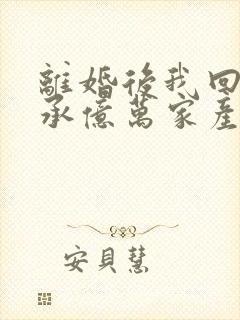 離婚後我回
承億萬家產
安貝慧